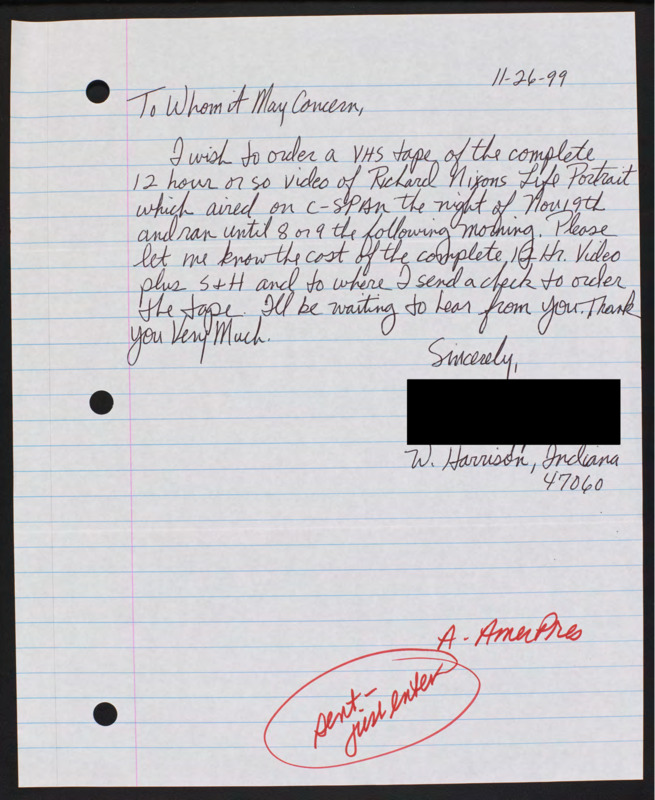 11-26-99
To Whom it May Concern,
I wish to order a VHS tape of the complete
12 hour or so video of Richard Nixons Life Portrait
which aired on C-SPAN the night of Nov 19th
and ran until 8 or 9 the following morning. Please
let me know the cost of the complete, 12 Hr. Video
plus S+H and to where I send a check to order
the tape. I'll be waiting to hear from you. Thank
you Very Much.
Sincerely,
W. Harrison, Indiana
47060
A - AmerPres
sent -
just enter